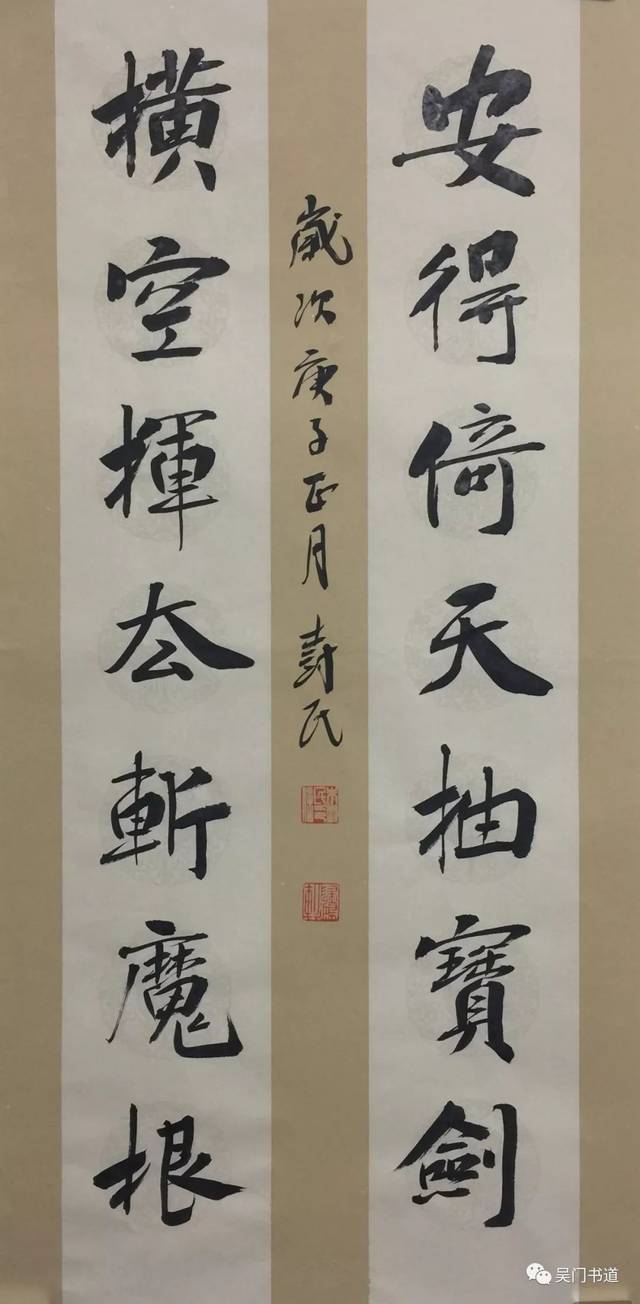 安得倚天抽寶劍
橫空揮去斬魔根
歲次庚子正月 壽民
吴门书道